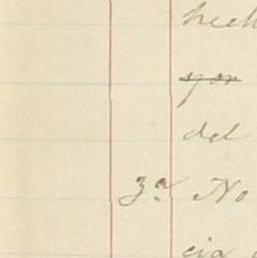 hech
por
del
3ª No
cia